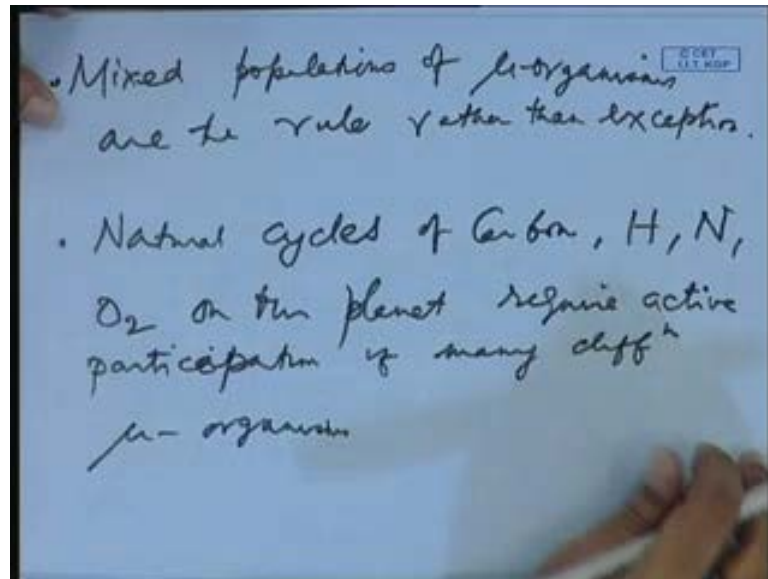 . Mixed populations of μ-organisms
© CET
I.I.T. KGP
are the rule rather than exception.
. Natural cycles of Carbon, H, N,
O₂ on this planet require active
participation of many diffⁿ
μ- organisms